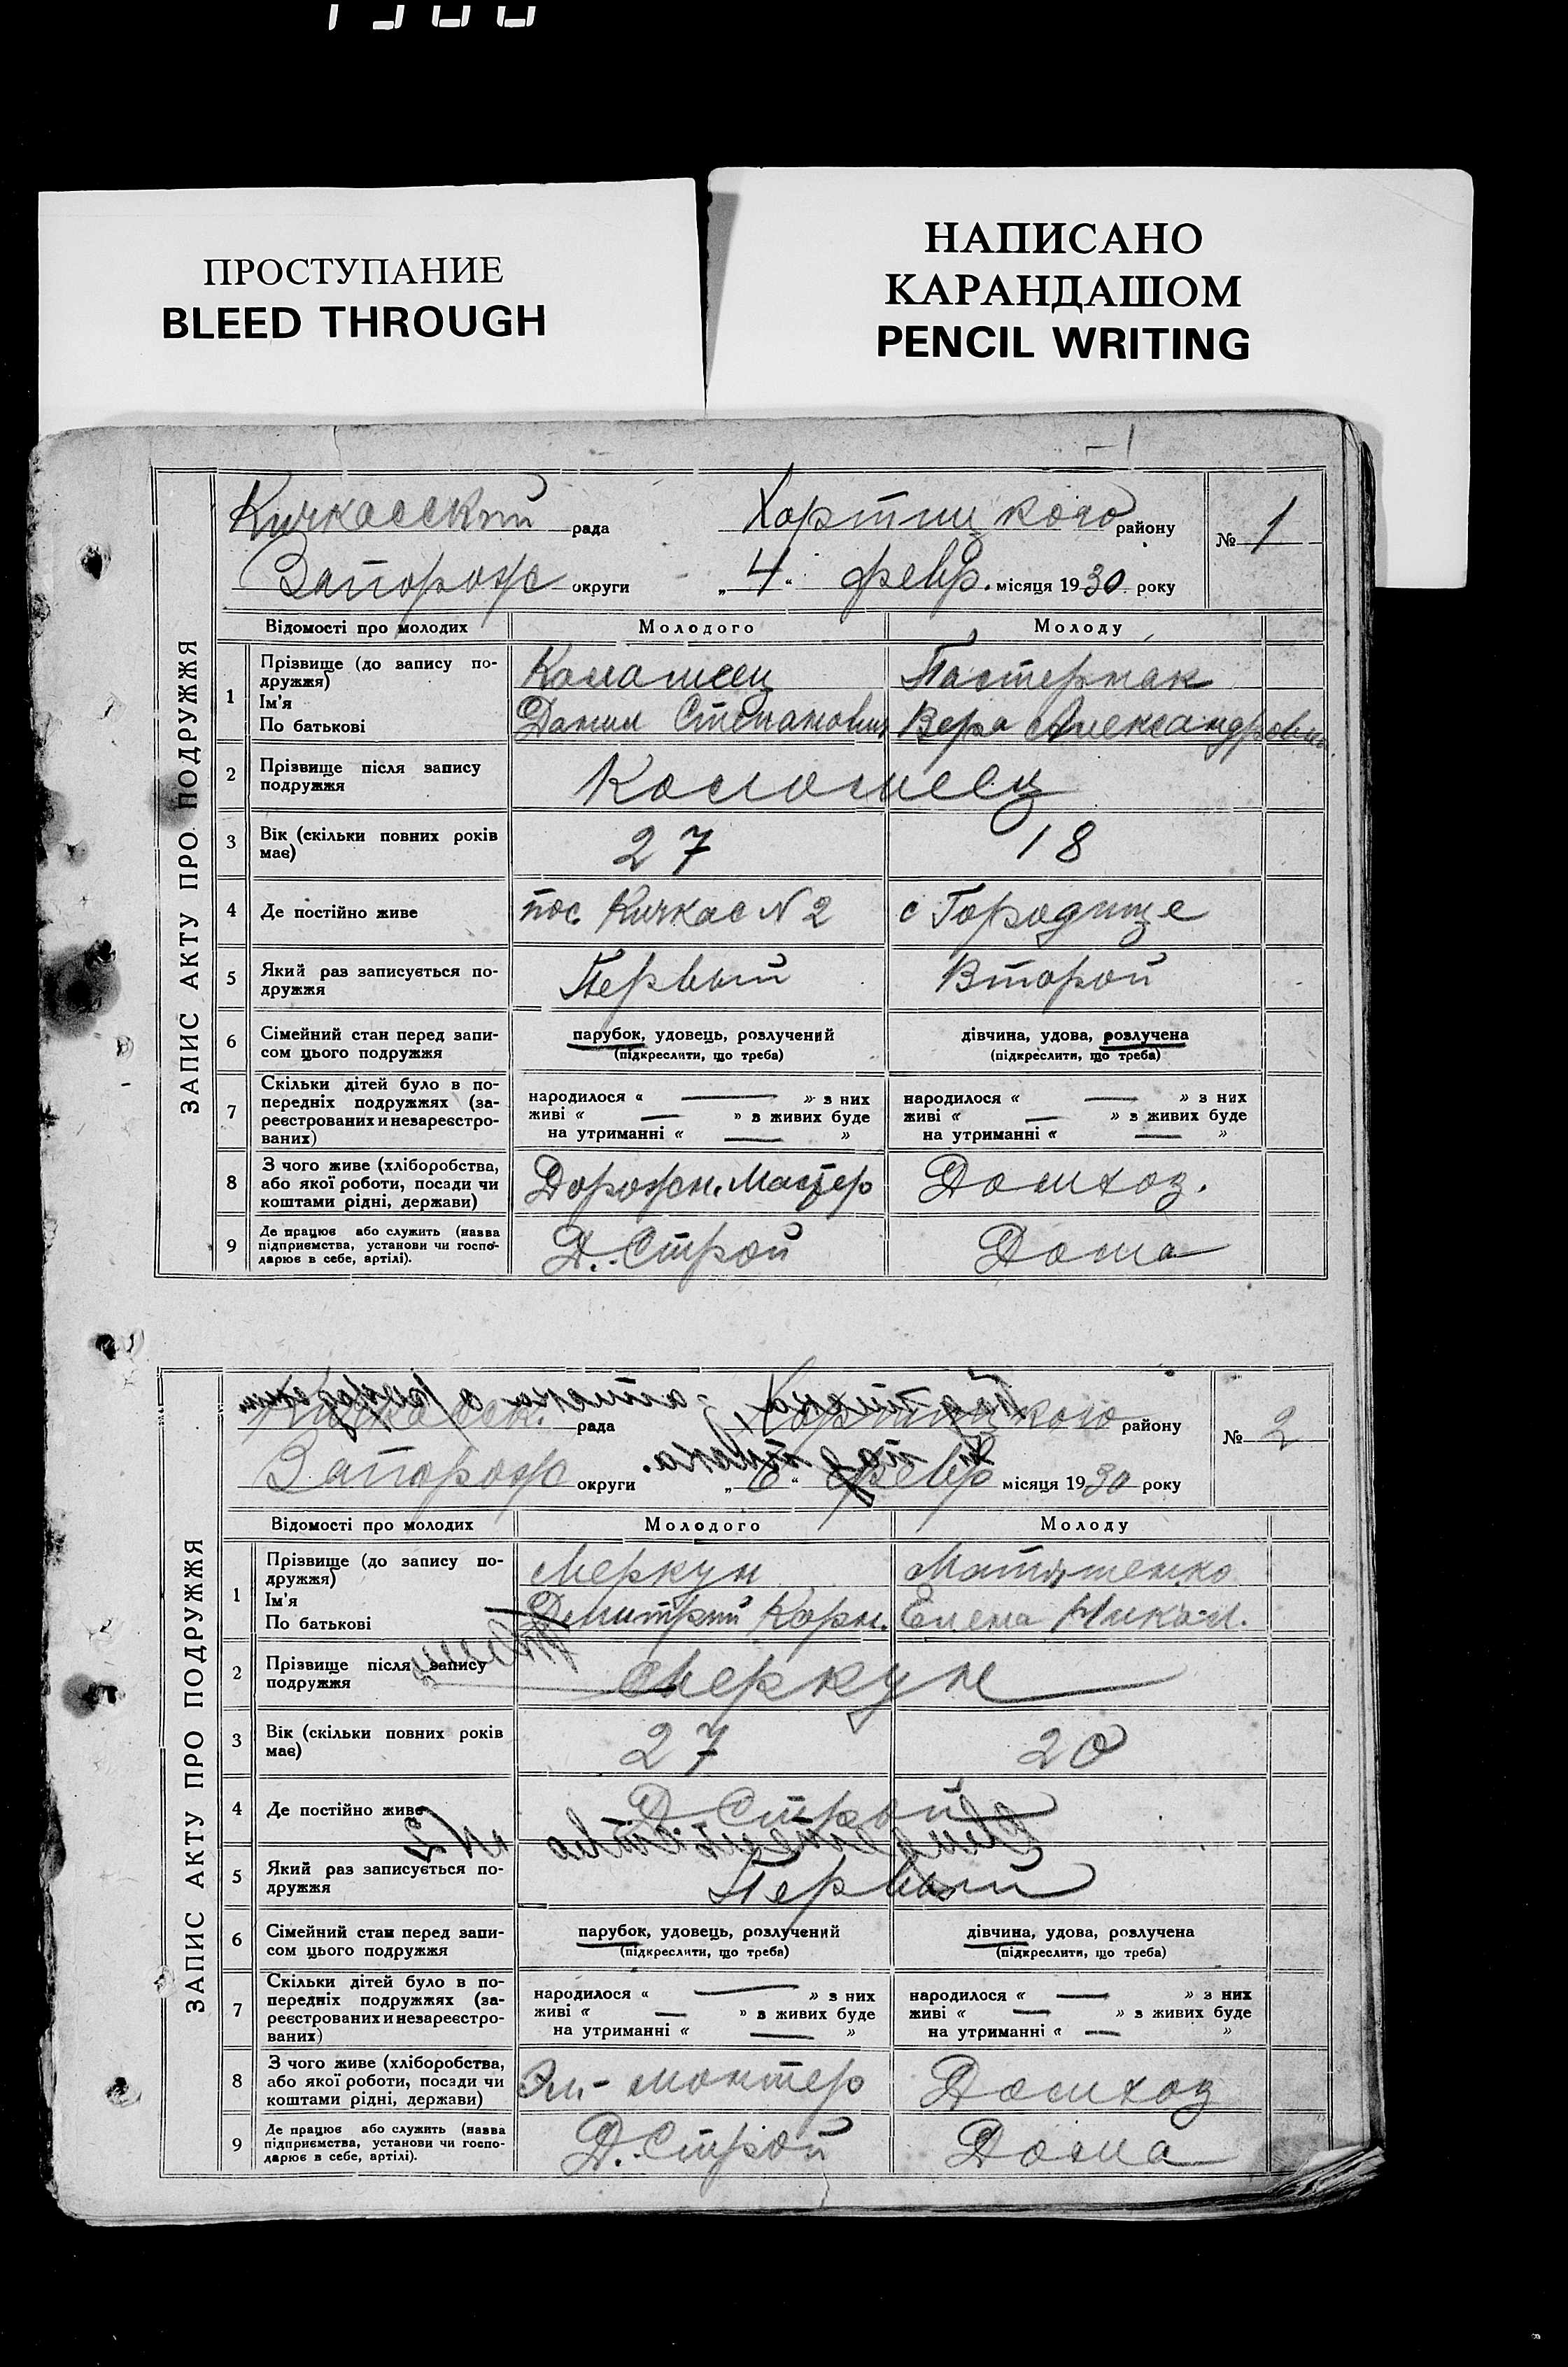 ПРОСТУПАНИЕ
BLEED THROUGH
НАПИСАНО
КАРАНДАШОМ
PENCIL WRITING
1
ЗАПИС АКТУ ПРО ПОДРУЖЖЯ
Кичкасский рада Хортицкого району № 1
Запорож округи „4“ февр. місяця 1930 року
Відомості про молодих Молодого Молоду
1 Прізвище (до запису по- Коломиец Пастернак
дружжя)
Ім'я
По батькові Данил Степанович Вера Александровна
2 Прізвище після запису Коломиец
подружжя
3 Вік (скільки повних років 27 18
має)
4 Де постійно живе пос. Кичкас N 2 с Городище
5 Який раз записується по- Первый Второй
дружжя
6 Сімейний стан перед запи- парубок, удовець, розлучений дівчина, удова, розлучена
сом цього подружжя (підкреслити, що треба) (підкреслити, що треба)
7 Скільки дітей було в по-
передніх подружжях (за- народилося « — » з них народилося « — » з них
реєстрованих и незареєстро- живі « — » з живих буде живі « — » з живих буде
ваних) на утриманні « — » на утриманні « — »
8 З чого живе (хліборобства,
або якої роботи, посади чи Дорожн. Мастер Домхоз.
коштами рідні, держави)
9 Де працює або служить (назва
підприємства, установи чи госпо- Д. Строй Дома
дарює в себе, артілі).
ЗАПИС АКТУ ПРО ПОДРУЖЖЯ
Кичкасск. рада Хортицкого району № 2
Запорож округи „6“ февр місяця 1930 року
Відомості про молодих Молодого Молоду
1 Прізвище (до запису по- Меркун
дружжя)
Ім'я
По батькові Дмитрий Корн. Елена Никол.
2 Прізвище після запису Меркун
подружжя
3 Вік (скільки повних років 27 20
має)
4 Де постійно живе Д Строй
5 Який раз записується по- Первый
дружжя
6 Сімейний стан перед запи- парубок, удовець, розлучений дівчина, удова, розлучена
сом цього подружжя (підкреслити, що треба) (підкреслити, що треба)
7 Скільки дітей було в по-
передніх подружжях (за- народилося « — » з них народилося « — » з них
реєстрованих и незареєстро- живі « — » з живих буде живі « — » з живих буде
ваних) на утриманні « — » на утриманні « — »
8 З чого живе (хліборобства,
або якої роботи, посади чи Эл- монтер Домхоз
коштами рідні, держави)
9 Де працює або служить (назва
підприємства, установи чи госпо- Д. Строй Дома
дарює в себе, артілі).